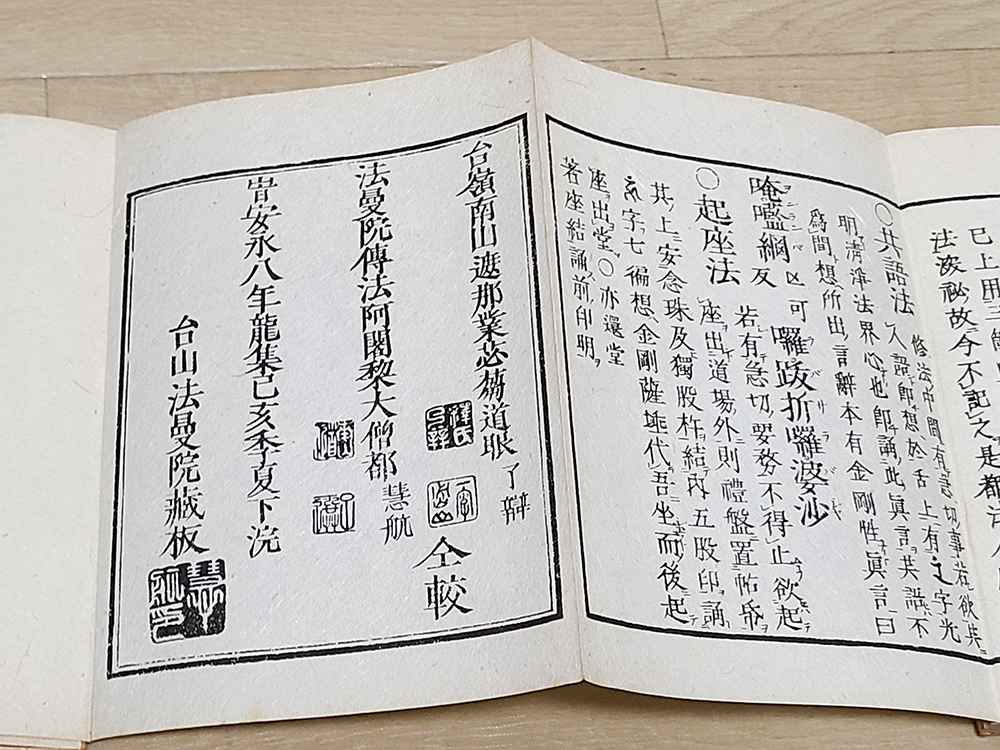 已上用三
法深祕故今不記之是都法
○共語法
修法中間有急切事若欲共
人語即想於舌上有
字光
明清淨法界心也即誦此眞言共語不
爲間想所出言辭本有金剛性眞言曰
唵嚂綱
可囉跋折囉婆沙
○起座法
若有急切要務不得止欲起
座出道場外則禮盤置帖
其上安念珠及獨股杵結内五股印誦
字七徧想金剛薩埵代吾坐而後起
座出堂○亦還堂
著座結誦前印明
台嶺南山遮那業苾蒭道眼
了辯
法曼院傳法阿闍黎大僧都慧航
仝較
旹安永八年龍集己亥季夏下浣
台山法曼院藏板